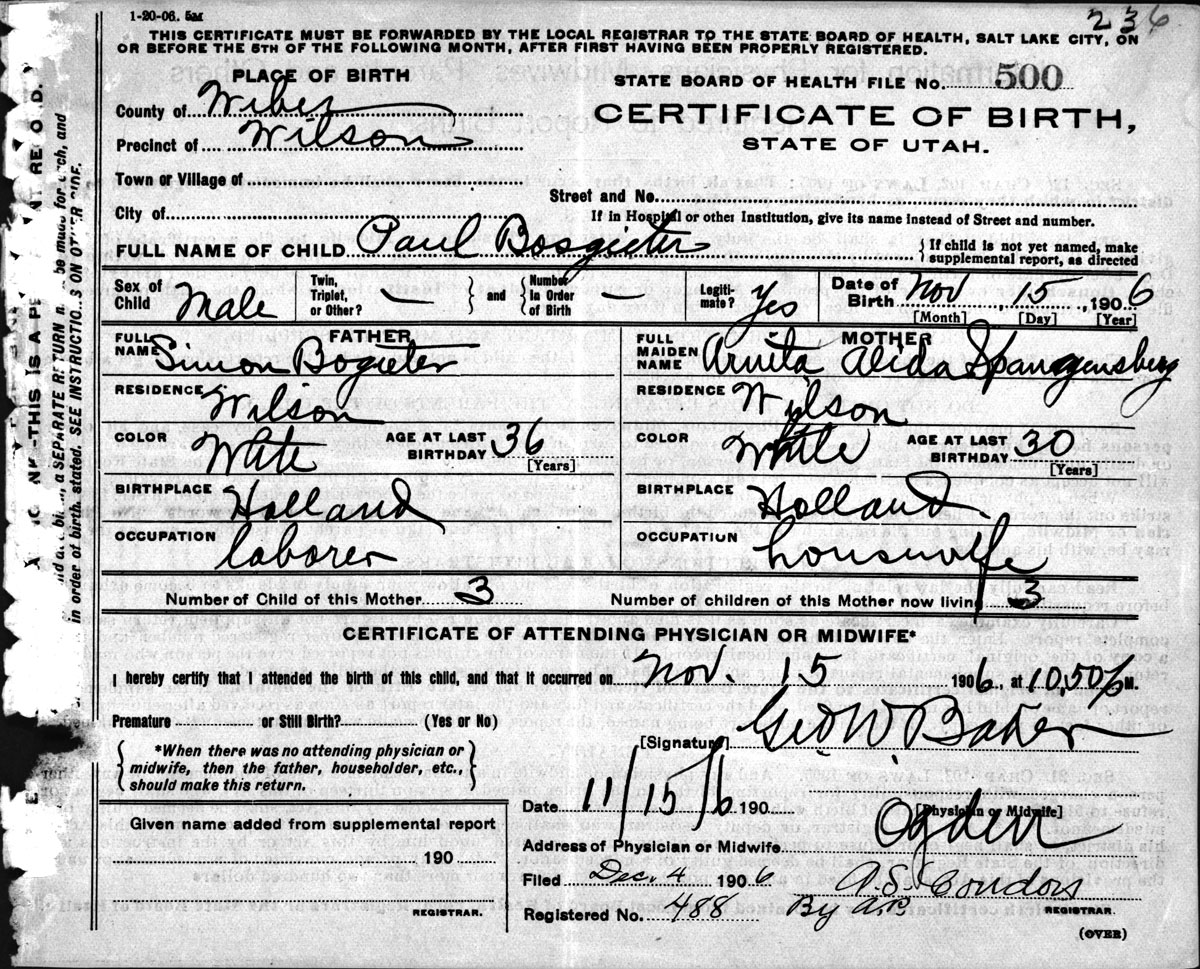 1-20-06. 5M
236
THIS CERTIFICATE MUST BE FORWARDED BY THE LOCAL REGISTRAR TO THE STATE BOARD OF HEALTH, SALT LAKE CITY, ON
OR BEFORE THE 5TH OF THE FOLLOWING MONTH, AFTER FIRST HAVING BEEN PROPERLY REGISTERED.
PLACE OF BIRTH
STATE BOARD OF HEALTH FILE No. 500
County of Weber
CERTIFICATE OF BIRTH,
Precinct of Wilson
STATE OF UTAH.
Town or Village of
Street and No.
City of
If in Hospital or other Institution, give its name instead of Street and number.
FULL NAME OF CHILD Paul Bosgieter
If child is not yet named, make supplemental report, as directed
Sex of Child Male Twin, Triplet, or Other? — and Number in Order of Birth — Legitimate? Yes Date of Birth Nov 15, 1906
[Month] [Day] [Year]
FATHER MOTHER
FULL NAME Simon Bogieter FULL MAIDEN NAME Alida
RESIDENCE Wilson RESIDENCE Wilson
COLOR White AGE AT LAST BIRTHDAY 36 [Years] COLOR White AGE AT LAST BIRTHDAY 30 [Years]
BIRTHPLACE Holland BIRTHPLACE Holland
OCCUPATION laborer OCCUPATION housewife
Number of Child of this Mother 3 Number of children of this Mother now living 3
CERTIFICATE OF ATTENDING PHYSICIAN OR MIDWIFE*
I hereby certify that I attended the birth of this child, and that it occurred on Nov. 15 1906, at 10,50 M.
Premature or Still Birth? (Yes or No)
[Signature] Geo W Baker
*When there was no attending physician or
midwife, then the father, householder, etc.,
should make this return.
Date 11/15/6 190
[Physician or Midwife]
Given name added from supplemental report
Address of Physician or Midwife. Ogden
190
Filed Dec. 4 1906 A.S. Condon
REGISTRAR.
Registered No. 488 By REGISTRAR.
(OVER)
in order of birth stated. SEE INSTRUCTIONS ON OTHER SIDE.